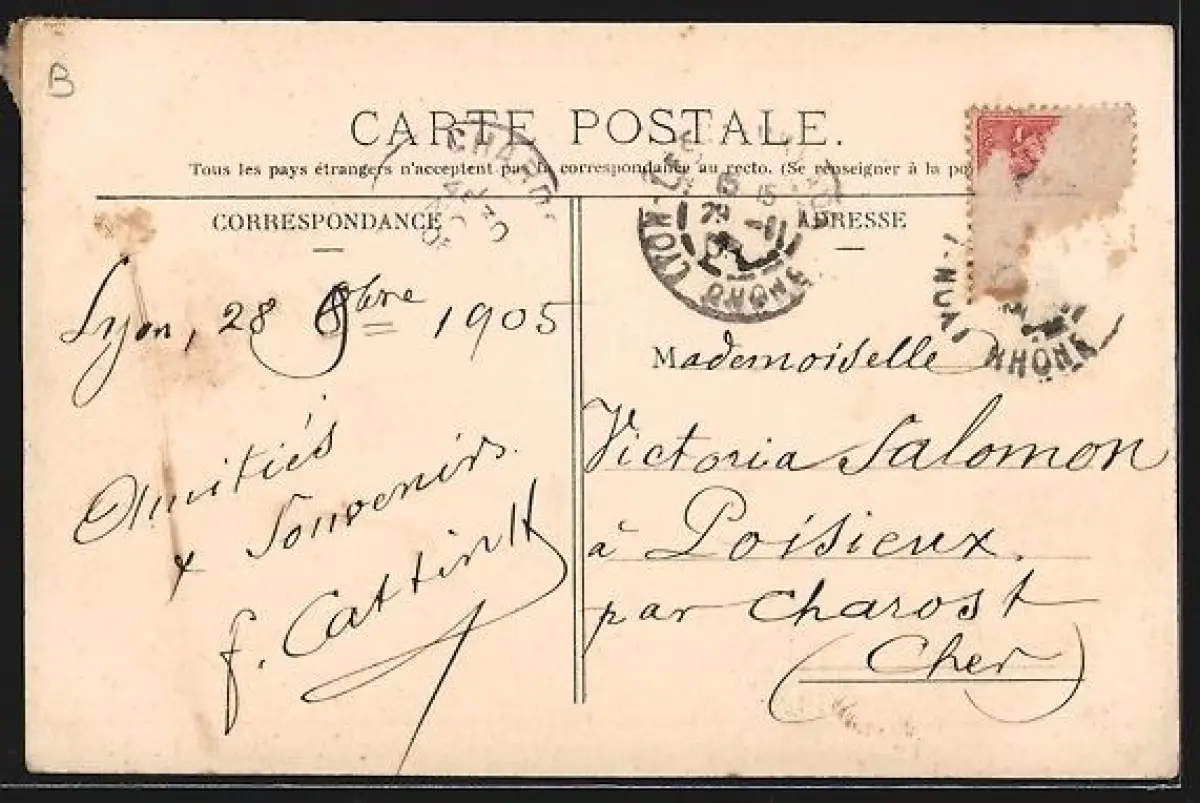 B
CARTE POSTALE.
Tous les pays étrangers n'acceptent pas la correspondance au recto. (Se renseigner à la po
CORRESPONDANCE
Lyon, 28 8bre 1905
Amitiés
& Souvenirs.
f.
ADRESSE
Mademoiselle
Victoria Salomon
à Poisieux.
par Charost
(Cher)
LYON
RHONE
RHONE